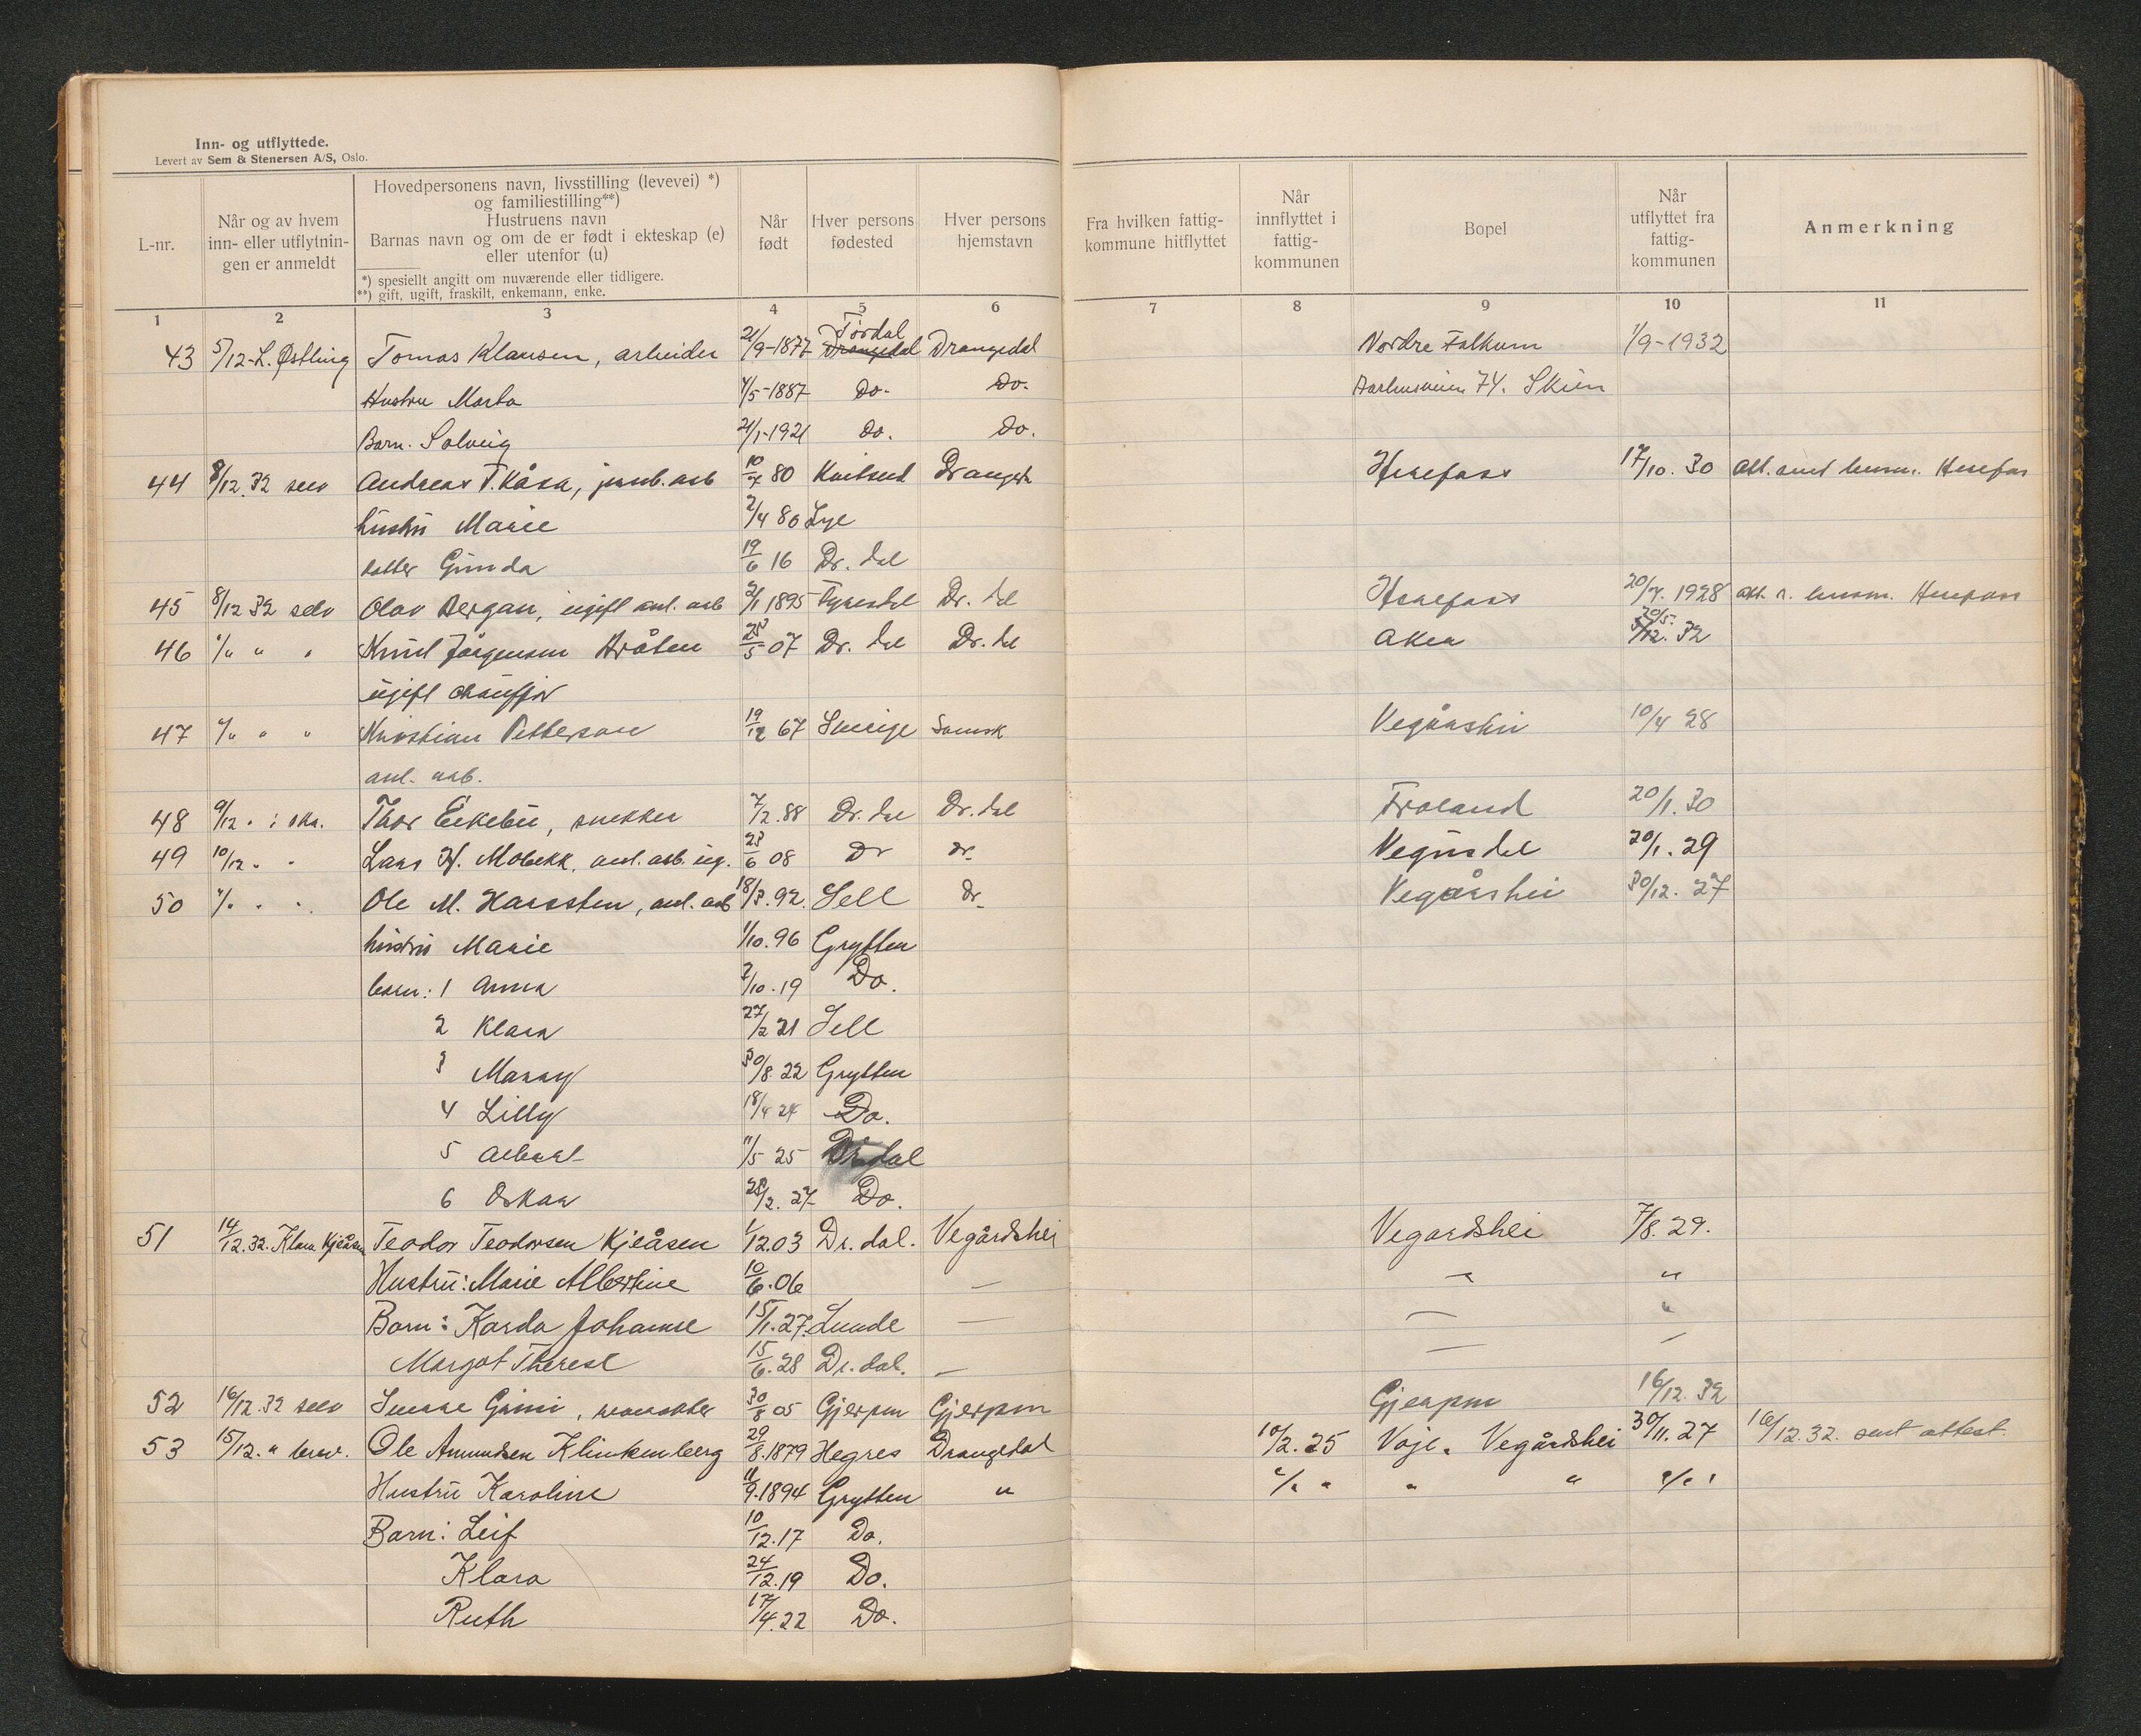 Inn- og utflyttede.
Levert av Sem & Stenersen A/S, Oslo.
L-nr.
Når og av hvem inn- eller utflytnin-gen er anmeldt
Hovedpersonens navn, livsstilling (levevei) *) og familiestilling**)
Hustruens navn
Barnas navn og om de er født i ekteskap (e) eller utenfor (u)
*) spesiellt angitt om nuværende eller tidligere.
**) gift, ugift, fraskilt, enkemann, enke.
Når født
Hver persons fødested
Hver persons hjemstavn
Fra hvilken fattig-kommune hitflyttet
Når innflyttet i fattig-kommunen
Bopel
Når utflyttet fra fattig-kommunen
Anmerkning
1 2 3 4 5 6 7 8 9 10 11
Tördal
43 5/12-L. Østling Tomas Klausen, arbeider 21/9-1877 Drangedal Drangedal Nordre Falkum 1/9-1932
Hustru Marta 4/5-1887 Do. Do. 74. Skien
Barn. Solveig 21/1-1921 Do. Do.
44 8/12.32 selv Andreas T. Kåsa, jernb.arb 10/7 80 Kvitseid Drangeda Herefoss 17/10.30 Herefos
hustru Marie 2/4 80 Lye
datter Gunda 19/6 16 Dr.dal
45 8/12 32 selv Olav Bergan, ugift anl. arb 2/1 1895 Fyresdal Dr.dal Herefoss 20/7.1928 Herefoss
20/5.
46 "/" " " Knut Jörgensen Bråten 28/5 07 Dr.dal Dr.dal Aker 5/12.32
ugift chauffør
47 "/" " " Kristian Petterson 19/12 67 Sverige Svensk Vegårshei 10/4 28
anl. arb.
48 9/12 " Thor Eikebu, snekker 7/2.88 Dr.dal Dr.dal Froland 20/1.30
49 10/12. " Lars H. Mobekk, anl. arb. ug. 28/6 08 Dr Dr. Vegusdal 20/1.29
50 "/" " " Ole M. Harssten, anl. arb 18/3.92. Sell Dr. Vegårshei 30/12.27
hustru Marie 1/10.96 Grytten
barn: 1 Anna 2/10.19 Do.
2 Klara 27/2 21 Sell
3 Marry 30/8.22 Grytten
4 Lilly 18/4 24 Do.
5 Albert 11/5 25 Dr.dal
6 Oskar 28/2.27 Do.
51 14/12.32. Klara Kjeåsen Teodor Teodorsen Kjeåsen 1/12.03 Dr. dal. Vegårdshei Vegardshei 7/8.29.
Hustru: Marie Albertine 10/6.06 — " "
Barn: Karda Johanne 15/1.27. Lunde — — "
Margot Therese 15/6.28 Dr. dal. — — —
52 16/12.32 selv 30/8 05 Gjerpen Gjerpen Gjerpen 16/12.32
53 15/12. " brev. Ole Amundsen Klinkenberg 29/8.1879 Hegres Drangedal 10/2.25 Voje. Vegårdshei 30/11.27 16/12.32. sent attest.
Hustru Karoline 11/9.1894 Grytten " "/" " " " "/" "
Barn: Leif 10/12.17 Do.
Klara 24/12.19 Do.
Ruth 17/4.22 Do.